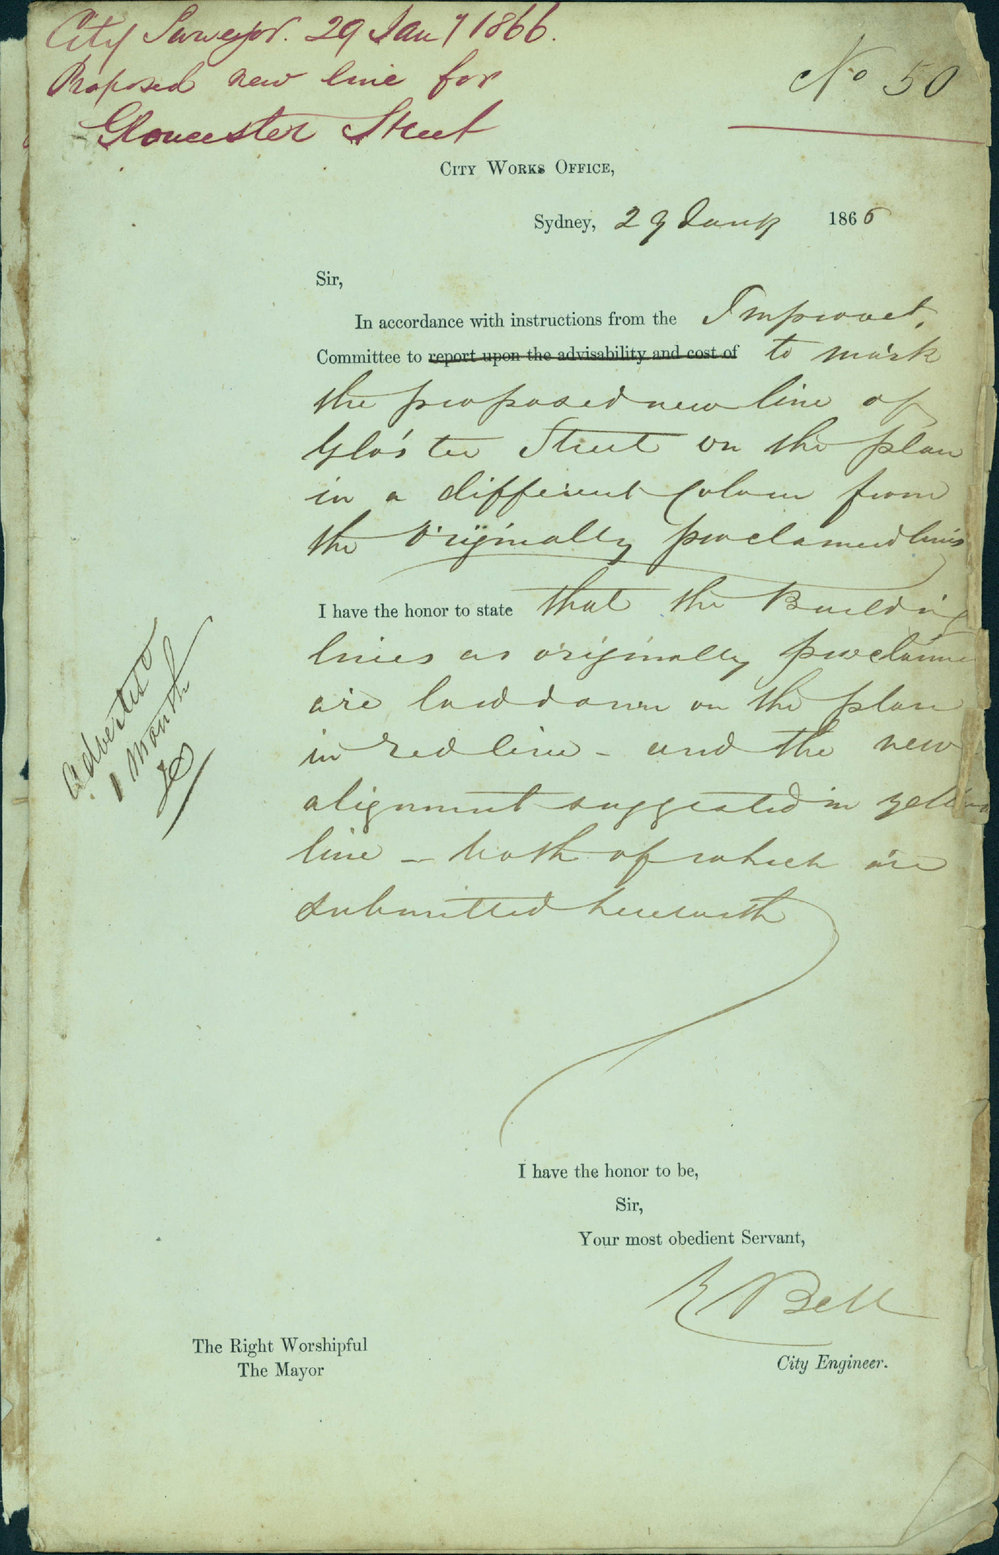 City Surveyor. 29 Jany 1866.
Proposed new line for
Gloucester Street
No 50
CITY WORKS OFFICE,
Sydney, 29 Jany 1866
Sir,
In accordance with instructions from the Improvet.
Committee to report upon the advisability and cost of to mark
the proposed new line of
Glo'ster Street on the plan
in a different colour from
the originally proclaimed lines
I have the honor to state that the Building
lines as originally proclaimed
are laid down on the plan
in red line - and the new
alignment suggested in yellow
line - both of which are
submitted herewith
advertised
1 month
I have the honor to be,
Sir,
Your most obedient Servant,
E Bell
City Engineer.
The Right Worshipful
The Mayor